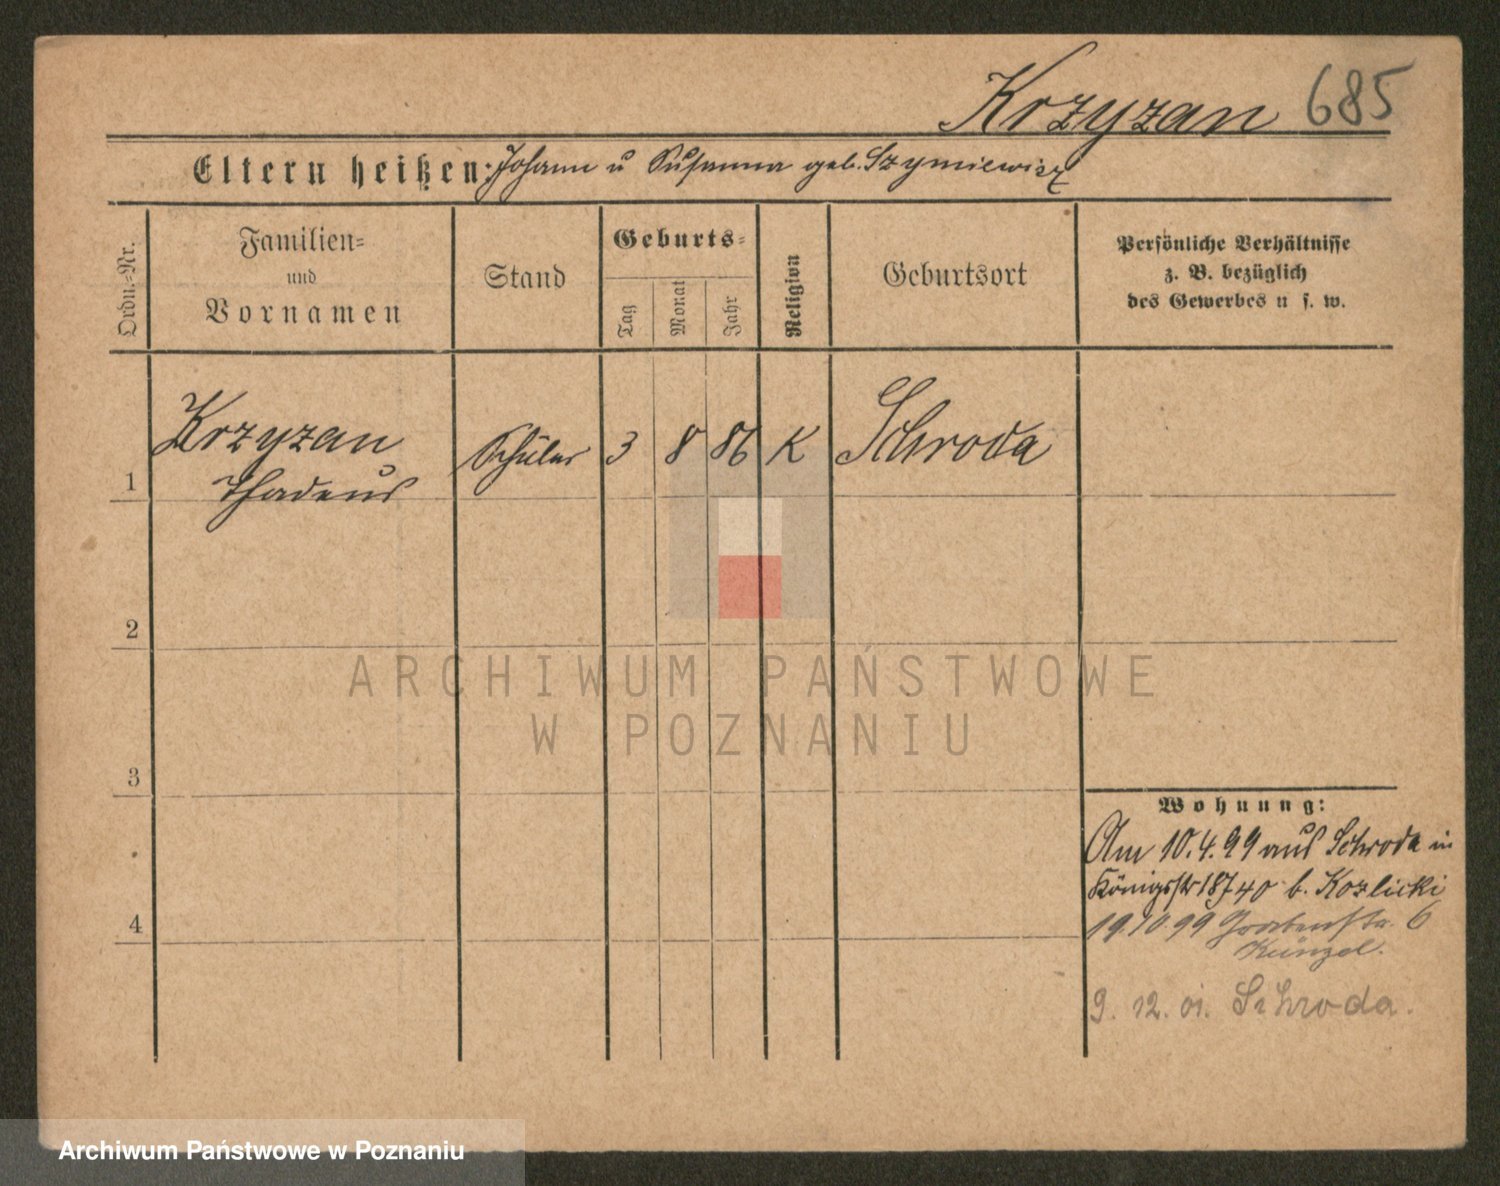 Krzyzan 685
Eltern heißen: Johann u Susanna geb. Szymiewicz
Ordn.-Nr.
Familien-
und
Vornamen
Stand
Geburts-
Tag
Monat
Jahr
Religion
Geburtsort
Persönliche Verhältnisse
z. B. bezüglich
des Gewerbes u. s. w.
1 Krzyzan Schüler 3 8 86 K Schroda
Thadeus
2
3
4
ARCHIWUM PAŃSTWOWE
W POZNANIU
Wohnung:
Am 10.4.99 aus Schroda in
Königsstr 18 b. Kozlicki
19.10.99 Grabenstr. 6
Künzel.
9. 12. 01. Schroda.
Archiwum Państwowe w Poznaniu